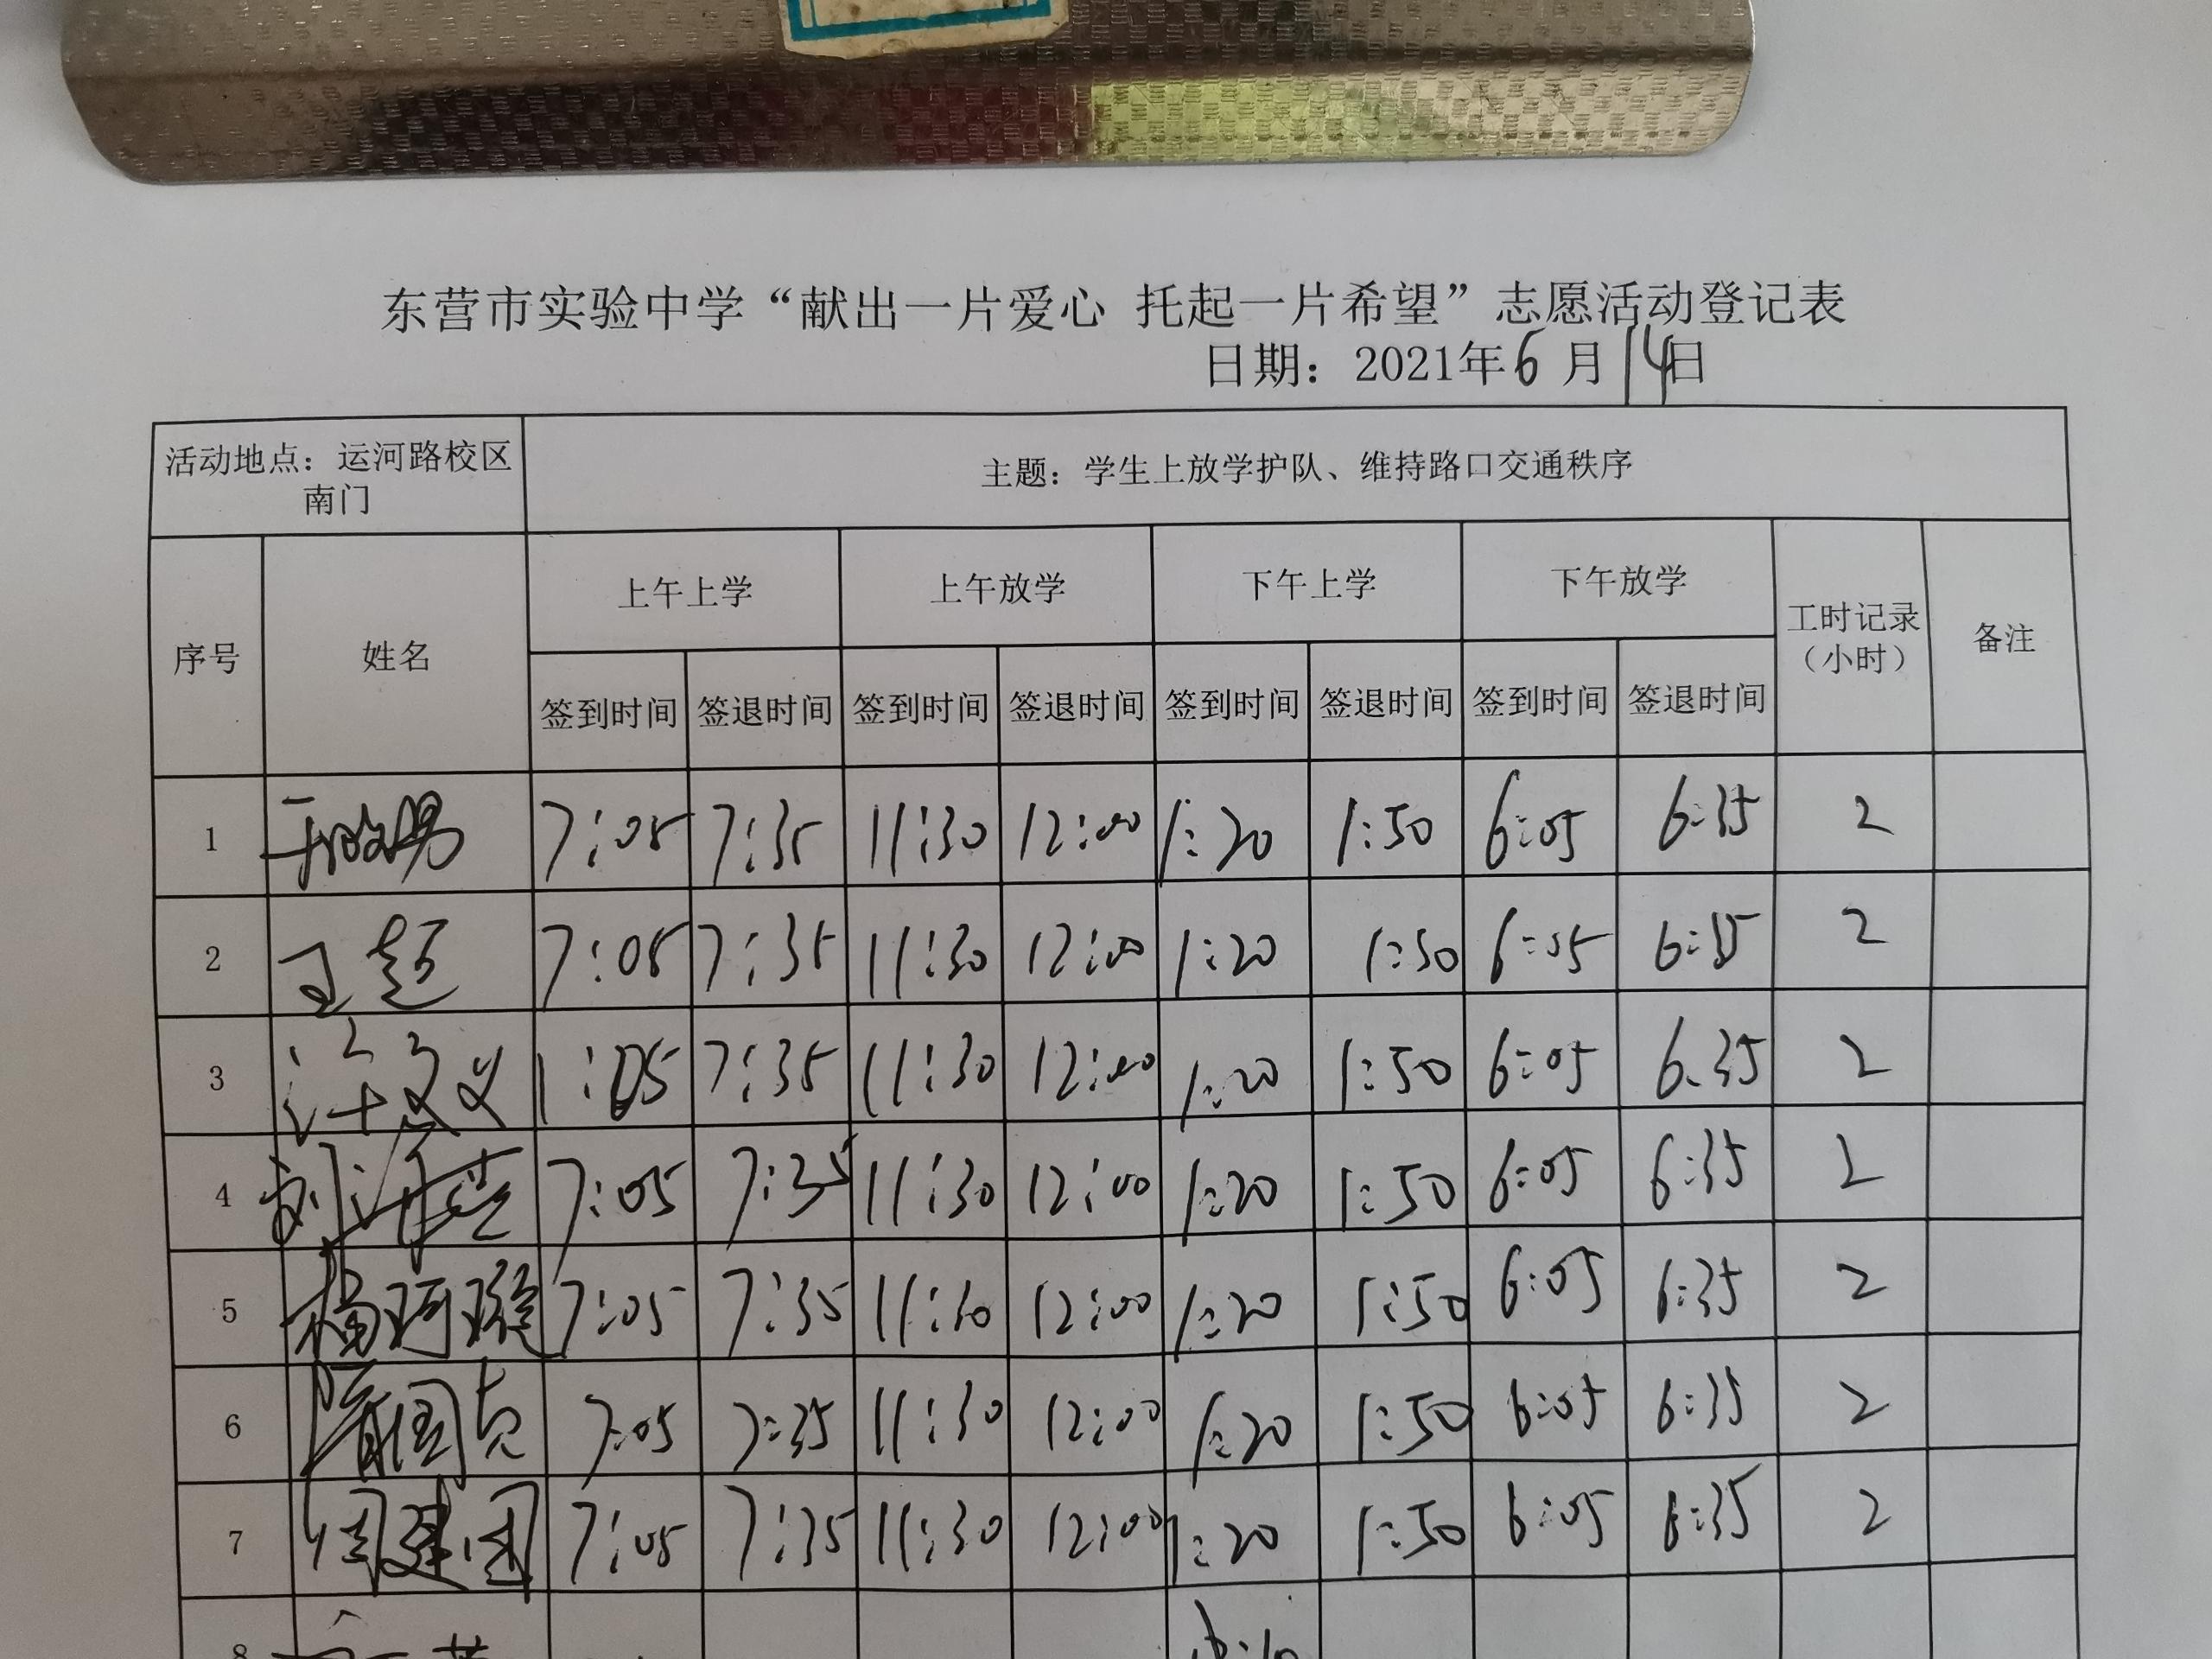 东营市实验中学“献出一片爱心 托起一片希望”志愿活动登记表
日期：2021年6月14日
活动地点：运河路校区南门 主题：学生上放学护队、维持路口交通秩序
序号 姓名 上午上学 上午放学 下午上学 下午放学 工时记录（小时） 备注
签到时间 签退时间 签到时间 签退时间 签到时间 签退时间 签到时间 签退时间
1 7:05 7:35 11:30 12:00 1:20 1:50 6:05 6:35 2
2 王超 7:05 7:35 11:30 12:00 1:20 1:50 6:05 6:35 2
3 :05 7:35 11:30 12:00 1:20 1:50 6:05 6:35 2
4 7:05 7:35 11:30 12:00 1:20 1:50 6:05 6:35 2
5 杨珂璇 7:05 7:35 11:30 12:00 1:20 1:50 6:05 6:35 2
6 7:05 7:35 11:30 12:00 1:20 1:50 6:05 6:35 2
7 周建国 7:05 7:35 11:30 12:00 1:20 1:50 6:05 6:35 2
8